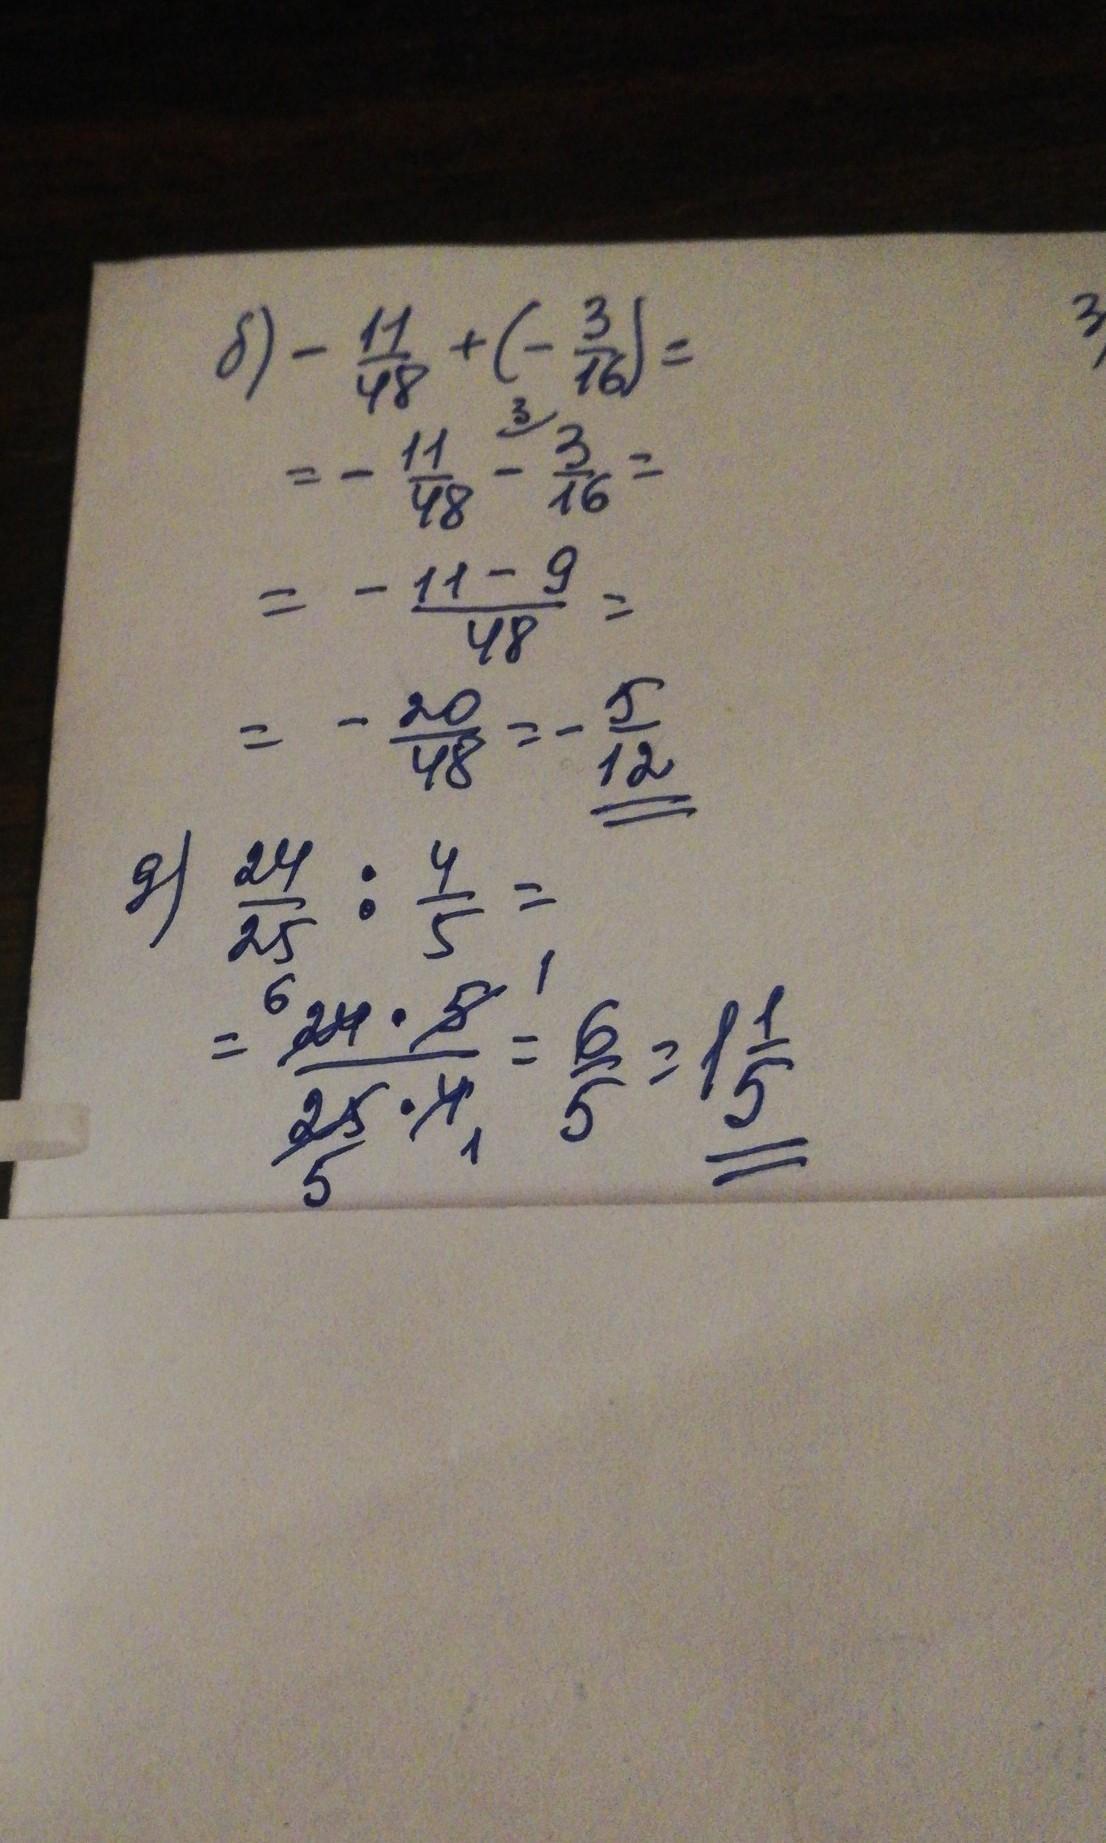 б) - 11/48 + (- 3/16) =
= - 11/48 - 3/16 =
3
= - 11 - 9 / 48 =
= - 20/48 = - 5/12
д) 24/25 : 4/5 =
= 24 · 5 / 25 · 4 = 6/5 = 1 1/5
6 1
5 1
3